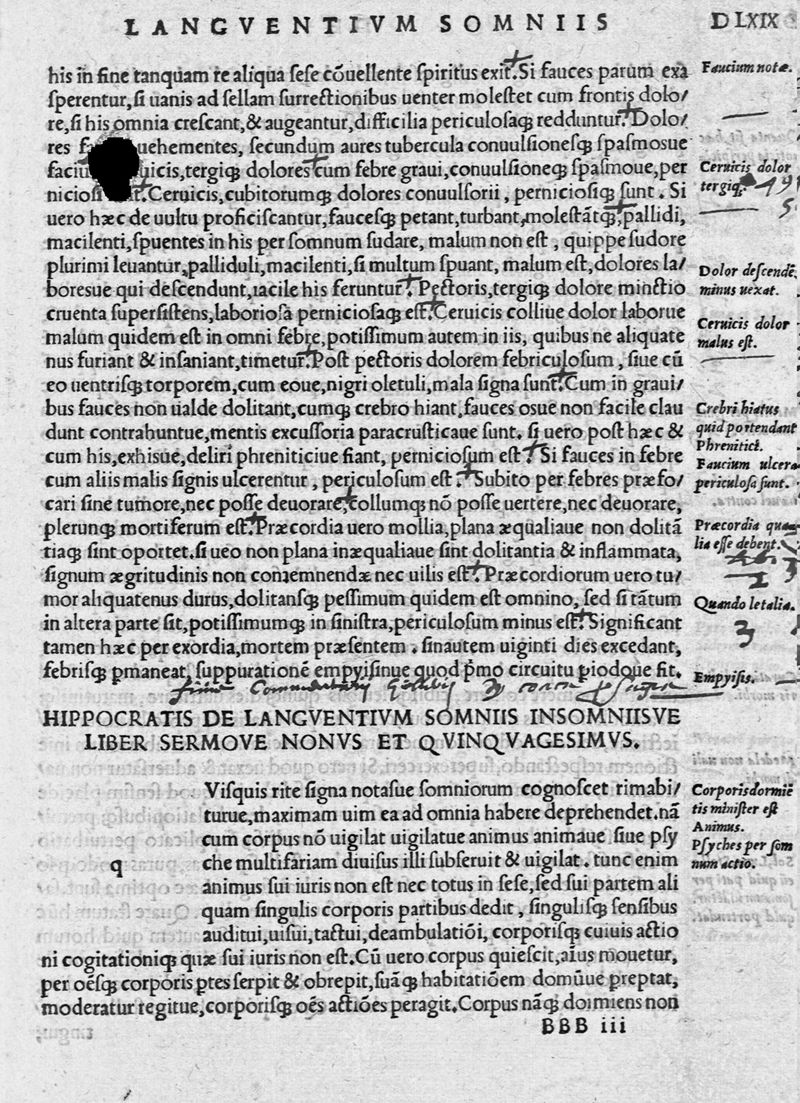 LANGVENTIVM SOMNIIS DLXIX
his in fine tanquam re aliqua sese cõuellente spiritus exit. Si fauces parum exa
sperentur, si uanis ad sellam surrectionibus uenter molestet cum frontis dolo/
re, si his omnia crescant, & augeantur, difficilia periculosaqꝫ redduntur. Dolo/
res uehementes, secundum aures tubercula conuulsionesqꝫ spasmosue
faciu uicis, tergiqꝫ dolores cum febre graui, conuulsioneqꝫ spasmoue, per
niciosi Ceruicis, cubitorumqꝫ dolores conuulsorii, perniciosiqꝫ sunt. Si
uero hæc de uultu proficiscantur, faucesqꝫ petant, turbant, molestãtqꝫ, pallidi,
macilenti, spuentes in his per somnum sudare, malum non est, quippe sudore
plurimi leuantur, palliduli, macilenti, si multum spuant, malum est, dolores la/
boresue qui descendunt, iacile his feruntur. Pectoris, tergiqꝫ dolore minctio
cruenta supersistens, laboriosa perniciosaqꝫ est. Ceruicis colliue dolor laborue
malum quidem est in omni febre, potissimum autem in iis, quibus ne aliquate
nus furiant & insaniant, timetur. Post pectoris dolorem febriculosum, siue cũ
eo uentrisqꝫ torporem, cum eoue, nigri oletuli, mala signa sunt. Cum in graui/
bus fauces non ualde dolitant, cumqꝫ crebro hiant, fauces osue non facile clau
dunt contrahuntue, mentis excussoria paracrusticaue sunt. si uero post hæc &
cum his, exhisue, deliri phreniticiue fiant, perniciosum est. Si fauces in febre
cum aliis malis signis ulcerentur, periculosum est. Subito per febres præfo/
cari sine tumore, nec posse deuorare, collumqꝫ nõ posse uertere, nec deuorare,
plerunqꝫ mortiferum est. Præcordia uero mollia, plana æqualiaue non dolitã
tiaqꝫ sint oportet. si ueo non plana inæqualiaue sint dolitantia & inflammata,
signum ægritudinis non contemnendæ nec uilis est. Præcordiorum uero tu/
mor aliquatenus durus, dolitansqꝫ pessimum quidem est omnino, sed si tãtum
in altera parte sit, potissimumqꝫ in sinistra, periculosum minus est. Significant
tamen hæc per exordia, mortem præsentem. sinautem uiginti dies excedant,
febrisqꝫ pmaneat, suppurationẽ empyisinue quod p̃mo circuitu piodoue fit.
HIPPOCRATIS DE LANGVENTIVM SOMNIIS INSOMNIISVE
LIBER SERMOVE NONVS ET QVINQVAGESIMVS.
q
Visquis rite signa notasue somniorum cognoscet rimabi/
turue, maximam uim ea ad omnia habere deprehendet. nã
cum corpus nõ uigilat uigilatue animus animaue siue psy
che multifariam diuisus illi subseruit & uigilat. tunc enim
animus sui iuris non est nec totus in sese, sed sui partem ali
quam singulis corporis partibus dedit, singulisqꝫ sensibus
auditui, uisui, tactui, deambulatiõi, corporisqꝫ cuiuis actio
ni cogitationiqꝫ quæ sui iuris non est. Cũ uero corpus quiescit, aĩus mouetur,
per oẽsqꝫ corporis ptes serpit & obrepit, suãqꝫ habitatiõem domũue preptat,
moderatur regitue, corporisqꝫ oẽs actiões peragit. Corpus nãqꝫ doimiens non
BBB iii
Faucium notæ.
Ceruicis dolor
tergiqꝫ
Dolor descendẽ.
minus uexat.
Ceruicis dolor
malus est.
Crebri hiatus
quid portendant
Phrenitici.
Faucium ulcera
periculosa sunt.
Præcordia qua
lia esse debent.
Quando letalia.
3
Empyisis.
Corporis dormiẽ
tis minister est
Animus.
Psyches per som
num actio.